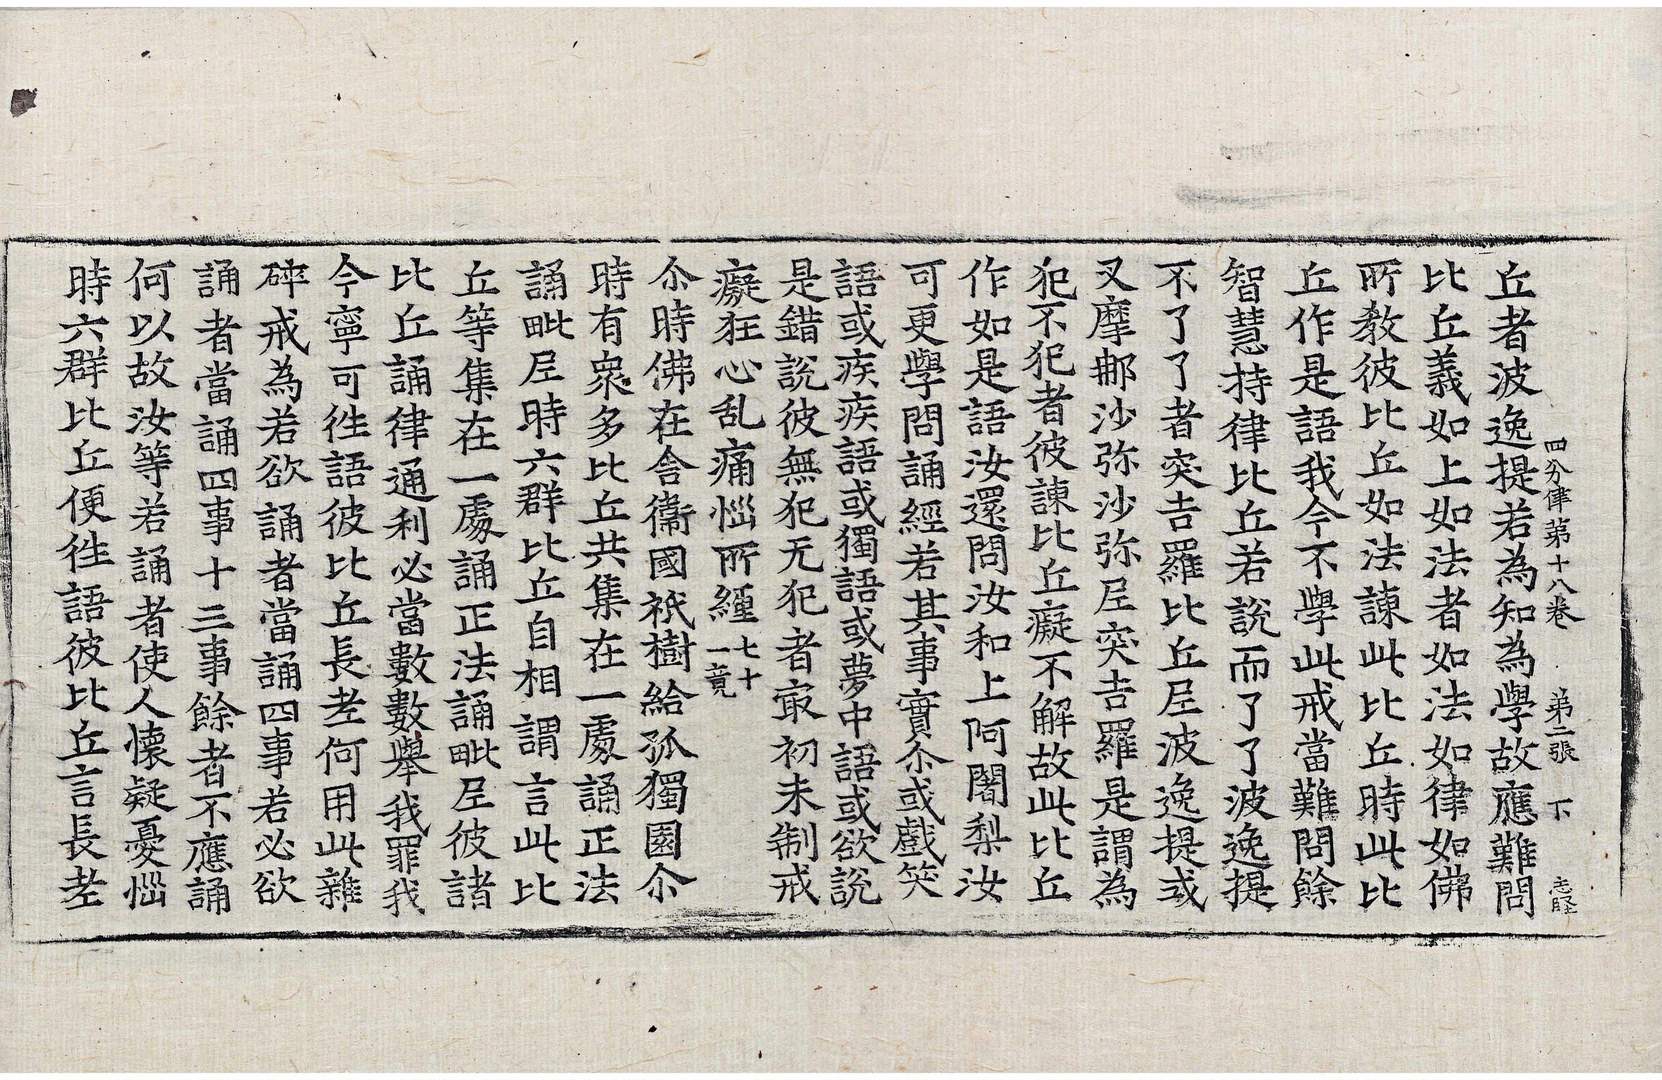 四分律第十八卷 第二張 下
丘者波逸提若為知為學故應難問
比丘義如上如法者如法如律如佛
所教彼比丘如法諫此比丘時此比
丘作是語我今不學此戒當難問餘
智慧持律比丘若說而了了波逸提
不了了者突吉羅比丘尼波逸提或
叉摩那沙弥沙弥尼突吉羅是謂為
犯不犯者彼諫比丘癡不解故此比丘
作如是語汝還問汝和上阿闍梨汝
可更學問誦經若其事實尒或戲笑
語或疾疾語或獨語或夢中語或欲說
是錯說彼無犯无犯者㝡初未制戒
癡狂心乱痛惱所纏七十一竟
尒時佛在舍衞國祇樹給孤獨園尒
時有眾多比丘共集在一處誦正法
誦毗尼時六群比丘自相謂言此比
丘等集在一處誦正法誦毗尼彼諸
比丘誦律通利必當數數舉我罪我
今寧可往語彼比丘長老何用此雜
碎戒為若欲誦者當誦四事若必欲
誦者當誦四事十三事餘者不應誦
何以故汝等若誦者使人懷疑憂惱
時六群比丘便往語彼比丘言長老